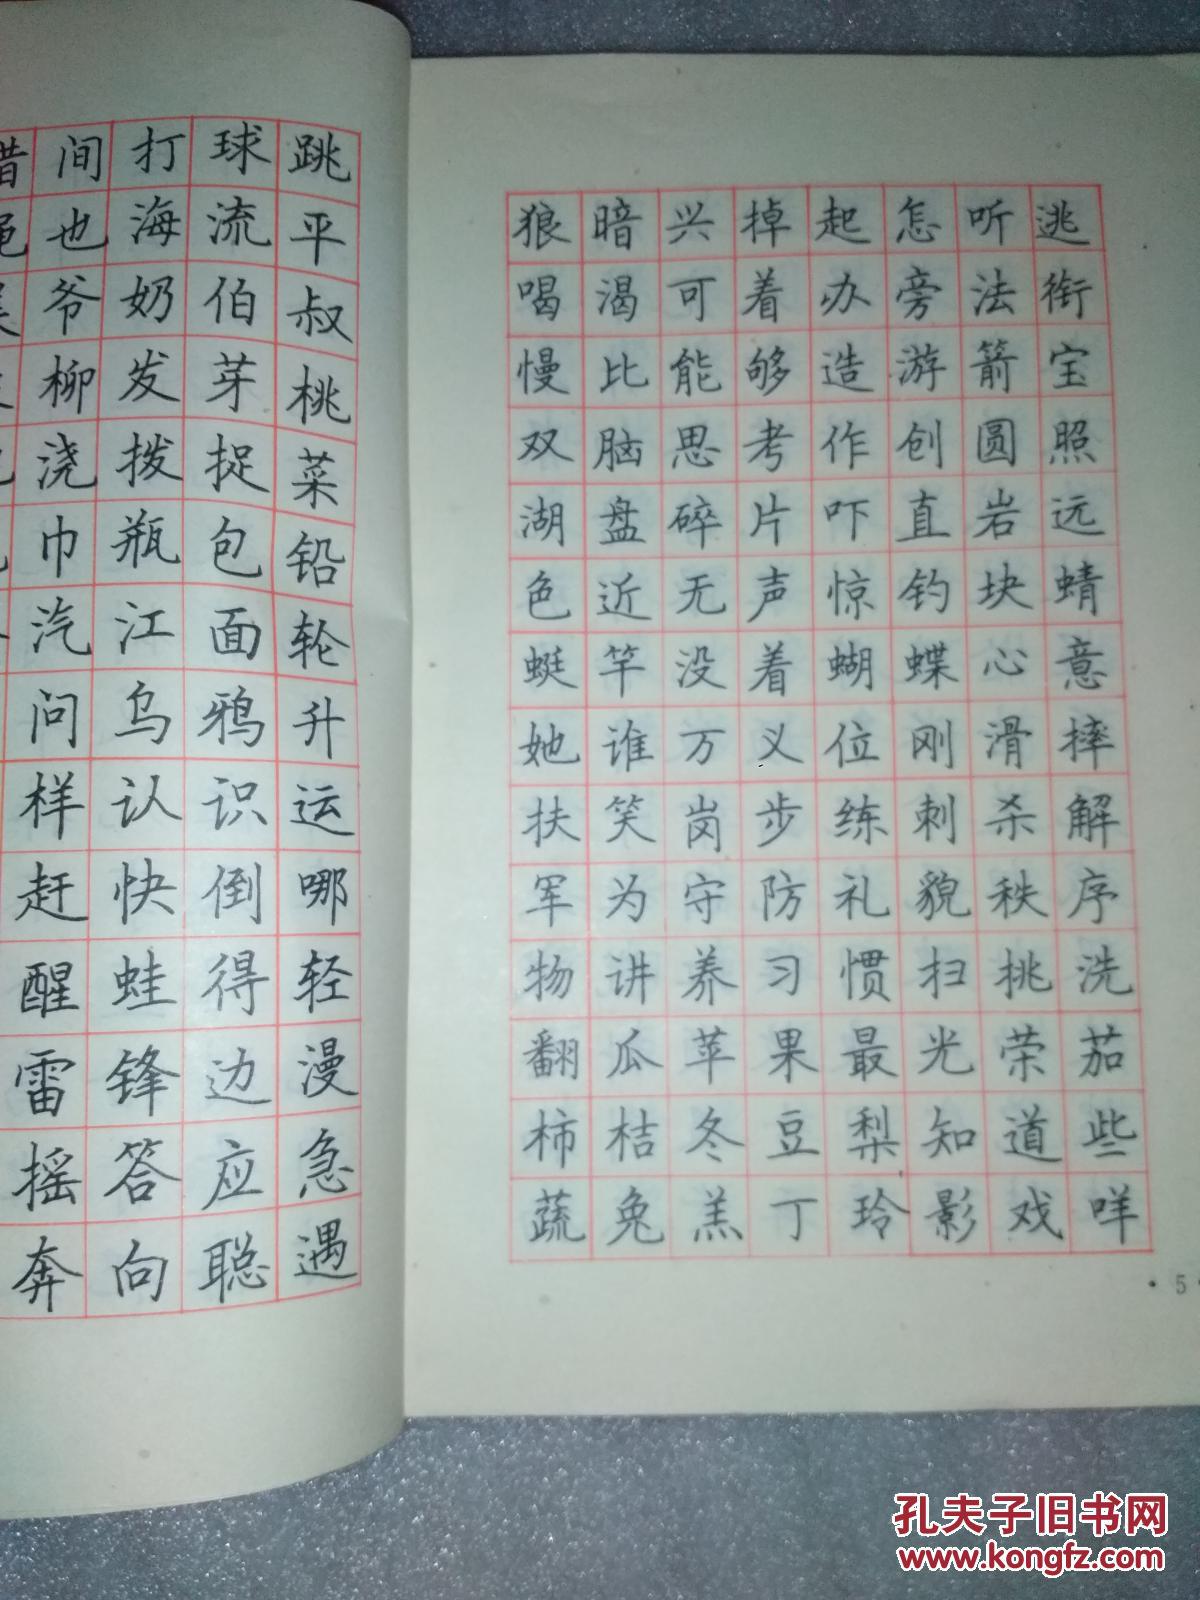 间打球跳
也海流平
爷奶伯叔
柳发芽桃
浇拨捉菜
巾瓶包铅
汽江面轮
问乌鸦升
样认识运
赶快倒哪
醒蛙得轻
雷锋边漫
摇答应急
奔向聪遇
狼暗兴掉起怎听逃
喝渴可着办旁法衔
慢比能够造游箭宝
双脑思考作创圆照
湖盘碎片吓直岩远
色近无声惊钓块蜻
蜓竿没着蝴蝶心意
她谁万义位刚滑摔
扶笑岗步练刺杀解
军为守防礼貌秩序
物讲养习惯扫挑洗
翻瓜苹果最光荣茄
柿桔冬豆梨知道些
蔬兔羔丁玲影戏咩
·5·
孔夫子旧书网
www.kongfz.com